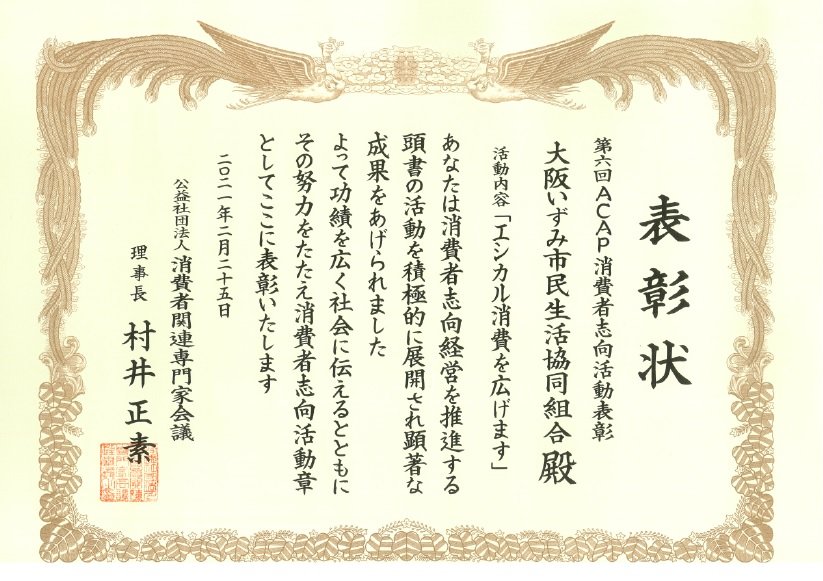 表彰状
第六回ACAP消費者志向活動表彰
大阪いずみ市民生活協同組合 殿
活動内容「エシカル消費を広げます」
あなたは消費者志向経営を推進する
頭書の活動を積極的に展開され顕著な
成果をあげられました
よって功績を広く社会に伝えるとともに
その努力をたたえ消費者志向活動章
としてここに表彰いたします
二〇二一年二月二十五日
公益社団法人 消費者関連専門家会議
理事長 村井正素